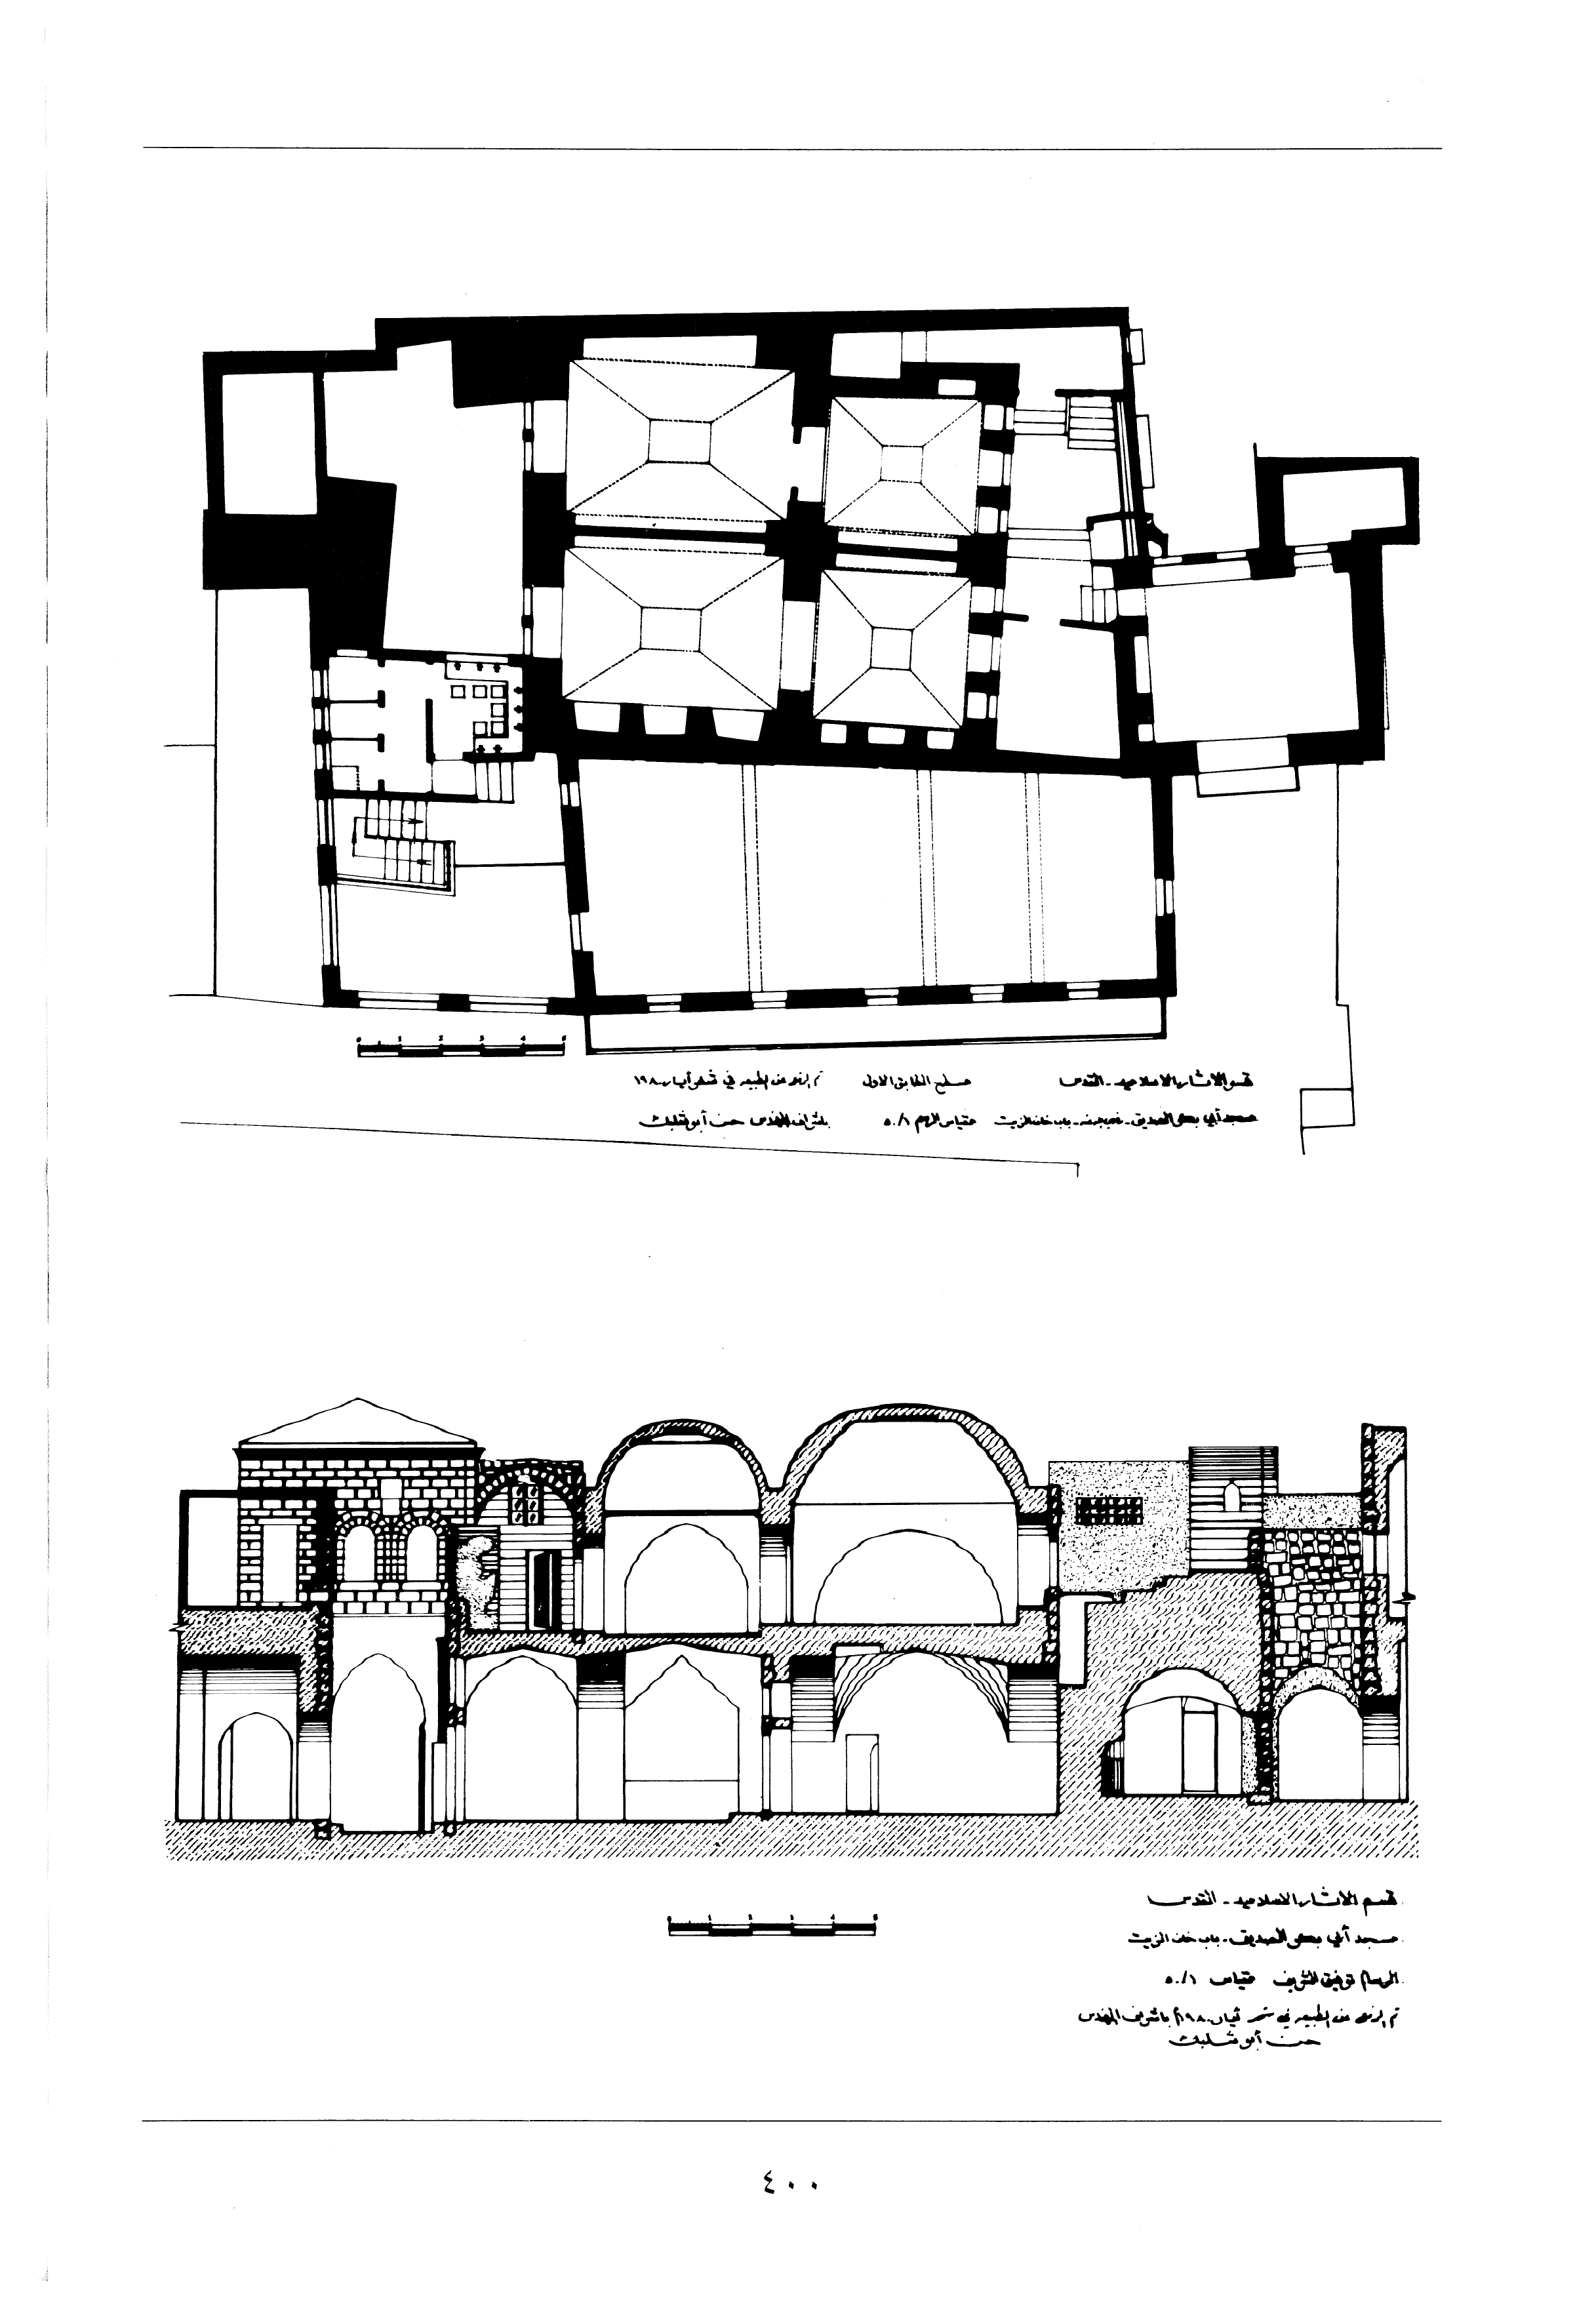 قسم الاثار الاسلاميه - القدس مسطح الطابق الاول تم الرفع من الطبيعه في شهر أيار ١٩٨٠
مسجد أبي بكر الصديق - باب خان الزيت مقياس الرسم ٥٠/١ باشراف المهندس حسن أبو شلبك
قسم الاثار الاسلاميه - القدس
مسجد أبي بكر الصديق - باب خان الزيت
الرسام توفيق الشريف مقياس ٥٠/١
تم الرفع من الطبيعه في شهر ١٩٨٠ باشراف المهندس
حسن أبو شلبك
٤٠٠